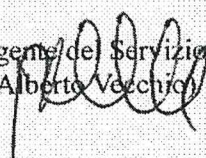 del Servizio
Alberto Vecchio)